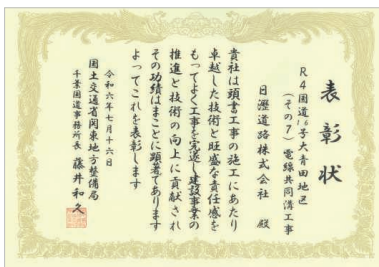 表彰状
R4国道16号大青田地区
（その7）電線共同溝工事
日瀝道路株式会社 殿
貴社は頭書工事の施工にあたり
卓越した技術と旺盛な責任感を
もってよく工事を完遂し建設事業の
推進と技術の向上に貢献され
その功績はまことに顕著であります
よってこれを表彰します
令和六年七月十六日
国土交通省関東地方整備局
千葉国道事務所長 藤井和久